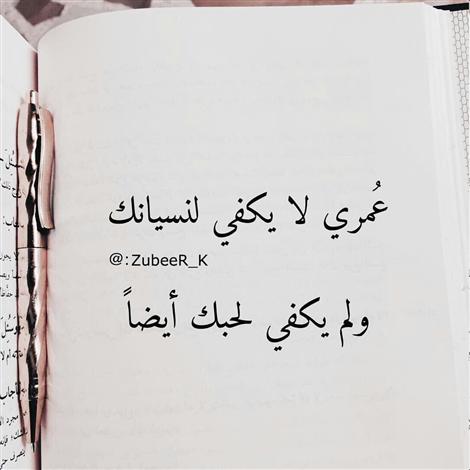 عُمري لا يكفي لنسيانك
@:ZubeeR_K
ولم يكفي لحبك أيضاً